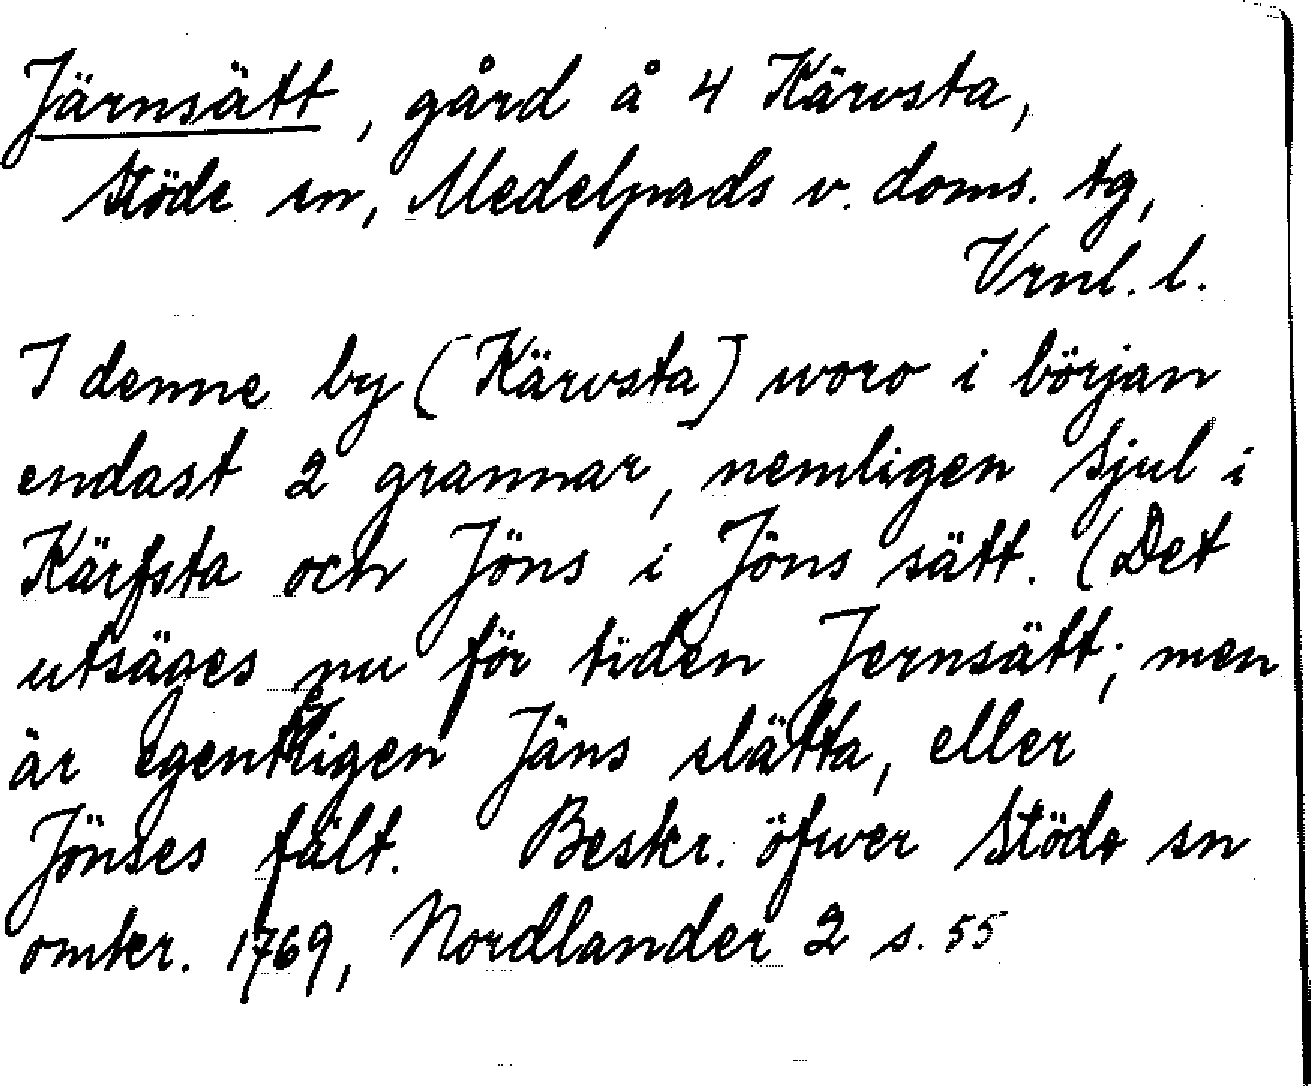 Järnsätt, gård å 4 Kärvsta,
Stöde sn, Medelpads v. doms. tg,
Vrnl. l.
I denne by [Kärvsta] woro i början
endast 2 grannar, nemligen Sjul i
Kärfsta och Jöns i Jöns sätt. (Det
utsäges nu för tiden Jernsätt; men
är egenteligen Jäns slätta, eller
Jönses fält. Beskr. öfwer Stöde sn
omkr. 1769, Nordlander 2 s. 55